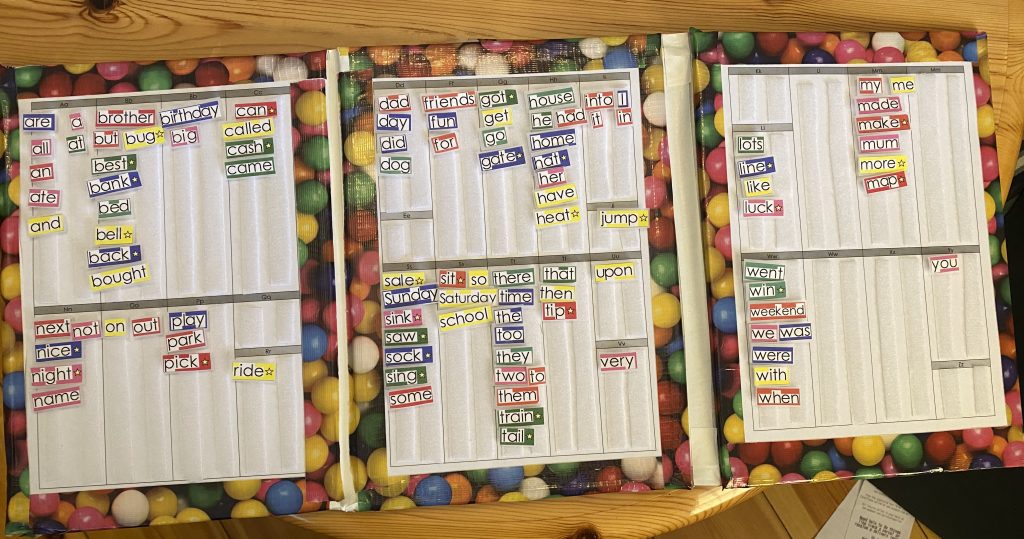 Aa Bb Bb Cc
are a brother birthday can
all at but bug big called
an best cash
ate bank came
and bed
bell
back
bought
Nn Oo Pp Qq
next not on out play
nice park
night pick
name
Rr
ride
Dd Ff Gg Hh Ii
dad friends got house into I
day fun get he had it in
did for go home
dog gate hat
her
have
heat
Ee
jump
Ss Ss Tt Tt
sale sit so there that upon
Sunday Saturday time then
sink school the tip
saw too
sock they
sing two to
some them
train
tail
Vv
very
Kk Ll Mm Mm
my me
made
make
mum
more
map
Ll
lots
line
like
luck
Ww Ww Xx Yy
went you
win
weekend
we was
were
with
when
Zz